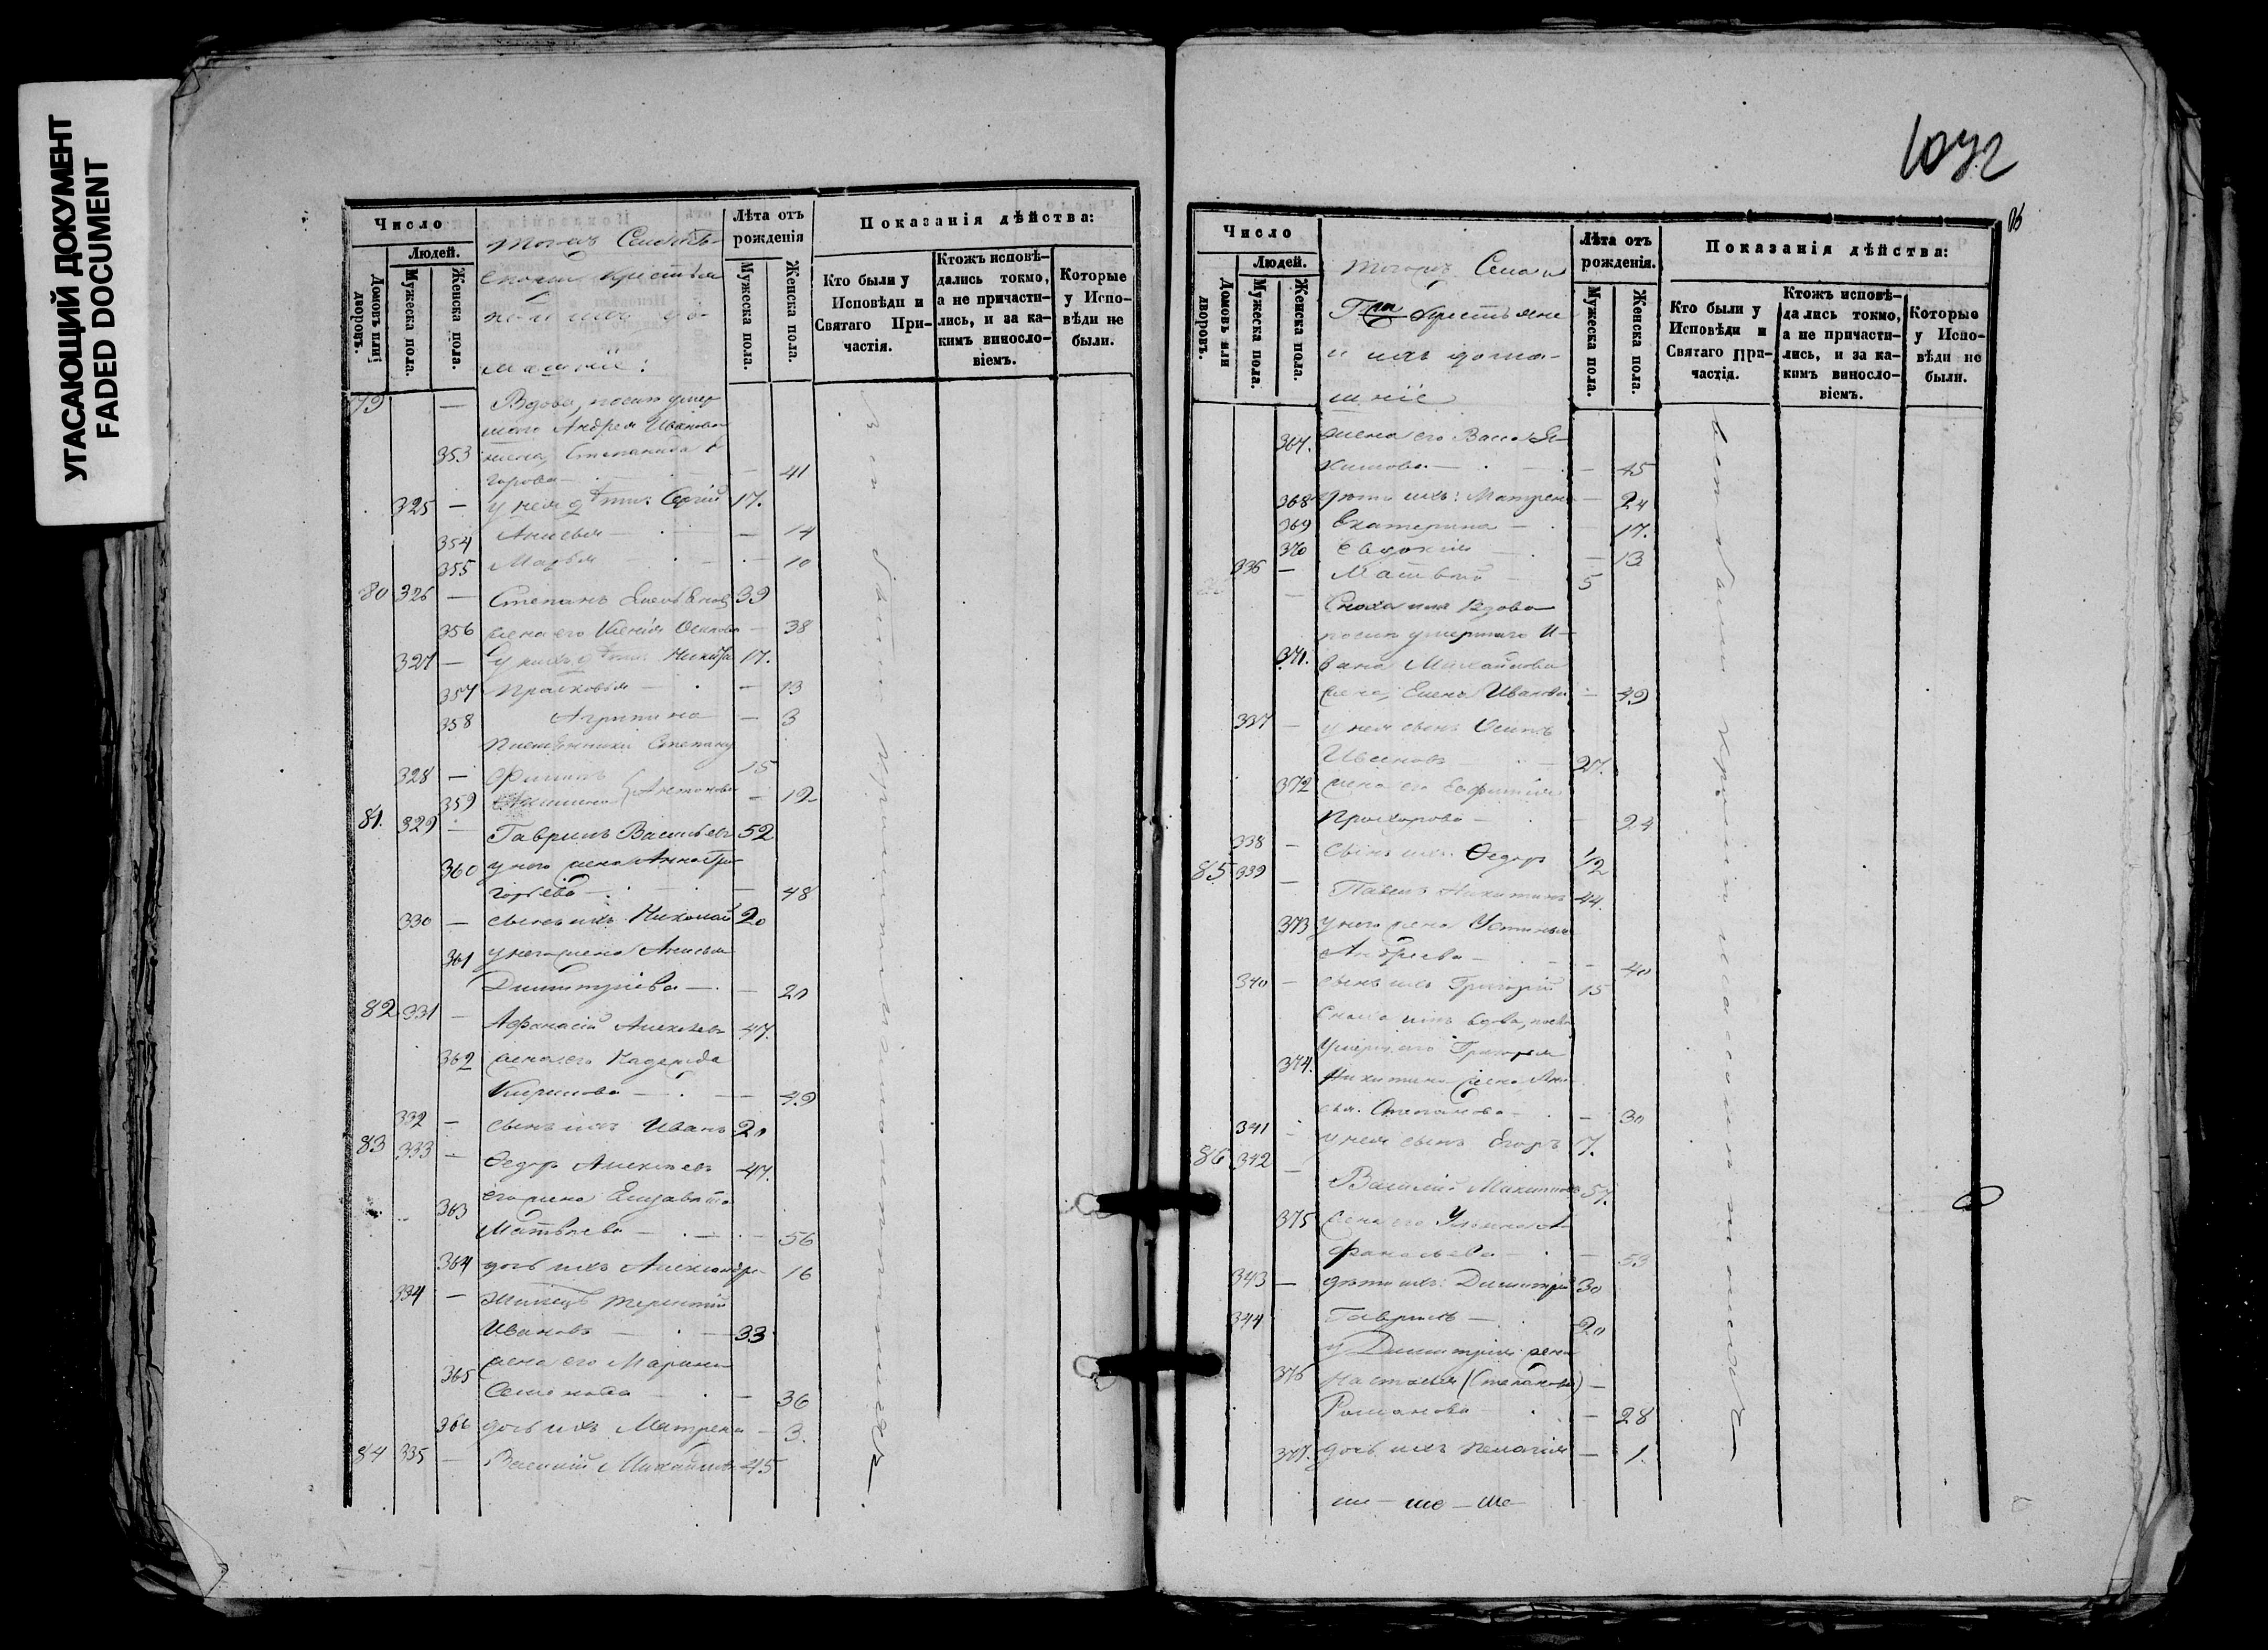 УГАСАЮЩИЙ ДОКУМЕНТ
FADED DOCUMENT
Число
Людей.
Домовъ или дворовъ.
Мужеска пола.
Женска пола.
Лѣта отъ рожденія
Мужеска пола.
Женска пола.
Показанія дѣйства:
Кто были у Исповѣди и Святаго Причастія.
Ктожъ исповѣдались токмо, а не причастились, и за какимъ винословіемъ.
Которые у Исповѣди не были.
79 — Вдова, послѣ умер
шаго Андрея Иванова
353 жена, Степанида Е
горова — 41
325 — у нея дѣти: Сергій 17.
354 Анисья — 14
355 Марья — 10
80 326 — Степанъ 39
356 жена его Ксенія Осипова — 38
327 — у нихъ дѣти: Никита 17.
357 Прасковья — 13
358 Агрипина — 3
Племянники Степану
328 — Филипъ 15
359 Антоновы — 12
81. 329 — Гаврилъ Васильевъ 52
360 у него жена Анна Гри
горьева — 48
330 — сынъ ихъ Николай 20
361 у него жена Анисья
Димитріева — 20
82 331 — Афанасій Алексѣевъ 47.
362 жена его Надежда
Кирилова — 49
332 — сынъ ихъ Иванъ 20
83 333 — Ѳедоръ Алексѣевъ 47.
363 его жена Елизавета
Матвѣева — 56
364 дочь ихъ Александра — 16
334 — Жилецъ Терентій
Ивановъ — 33
365 жена его Марина
Семенова — 36
366 дочь ихъ Матрена — 3.
84 335 — Василій Михайловъ 45
1072
Число
Людей.
Домовъ или дворовъ.
Мужеска пола.
Женска пола.
тогожъ Села
крестьяне
и ихъ дома-
шніе
Лѣта отъ рожденія.
Мужеска пола.
Женска пола.
Показанія дѣйства:
Кто были у Исповѣди и Святаго Причастія.
Ктожъ исповѣдались токмо, а не причастились, и за какимъ винословіемъ.
Которые у Исповѣди не были.
367. жена его Васса Я-
кимова — 45
368 дѣти ихъ: Матрена — 24
369 Екатерина — 17.
370 Евдокія — 13
336 — Матвѣй 5
Сноха ихъ вдова
послѣ умершаго И-
371. вана Михайлова
жена, Елена Иванова — 49
337 — у нея сынъ Осипъ
Ивановъ — 27.
372 жена его Евфимія
Прохорова — 24
338 — сынъ ихъ Ѳедоръ 1/2
85 339 — Павелъ Никитинъ 44.
373 у него жена Устинья
Андреева — 40
340 — сынъ ихъ Григорій 15
Сноха ихъ вдова, послѣ
умершаго Григорья
374. Никитина жена Ани
сья Степанова — 30
341 — у нея сынъ Егоръ 7.
86 342 — Василій 57.
375 жена его Ульяна А-
фанасьева — 53
343 — дѣти ихъ: Димитрій 30
344 Гаврилъ — 20
у Димитрія жена
376 Настасья (Степанова) —
Романова — 28
377. дочь ихъ Пелагія — 1.